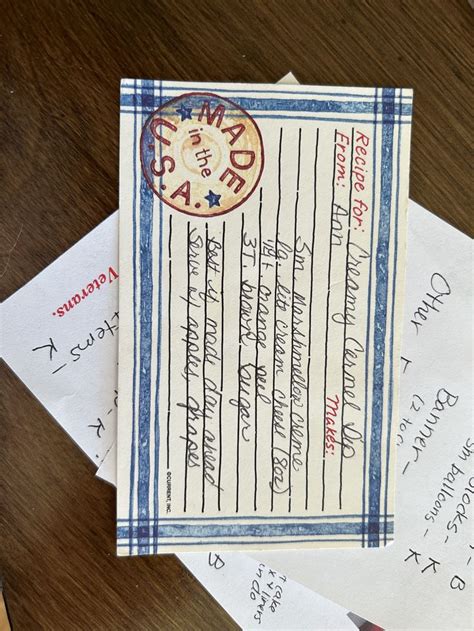 MADE
in the
U.S.A.
Recipe for: Creamy Caramel Dip
From: Ann Makes:
Sm. Marshmellow Creme
lg. lite cream cheese (8oz)
orange peel
3T. brown sugar
Best if mad day ahead
Serve w/ apples, grapes
©CURRENT, INC.
Veterans.
Items -
K
Other
Banner -
(2 to
Sm balloons -
K
B
K
B
cake